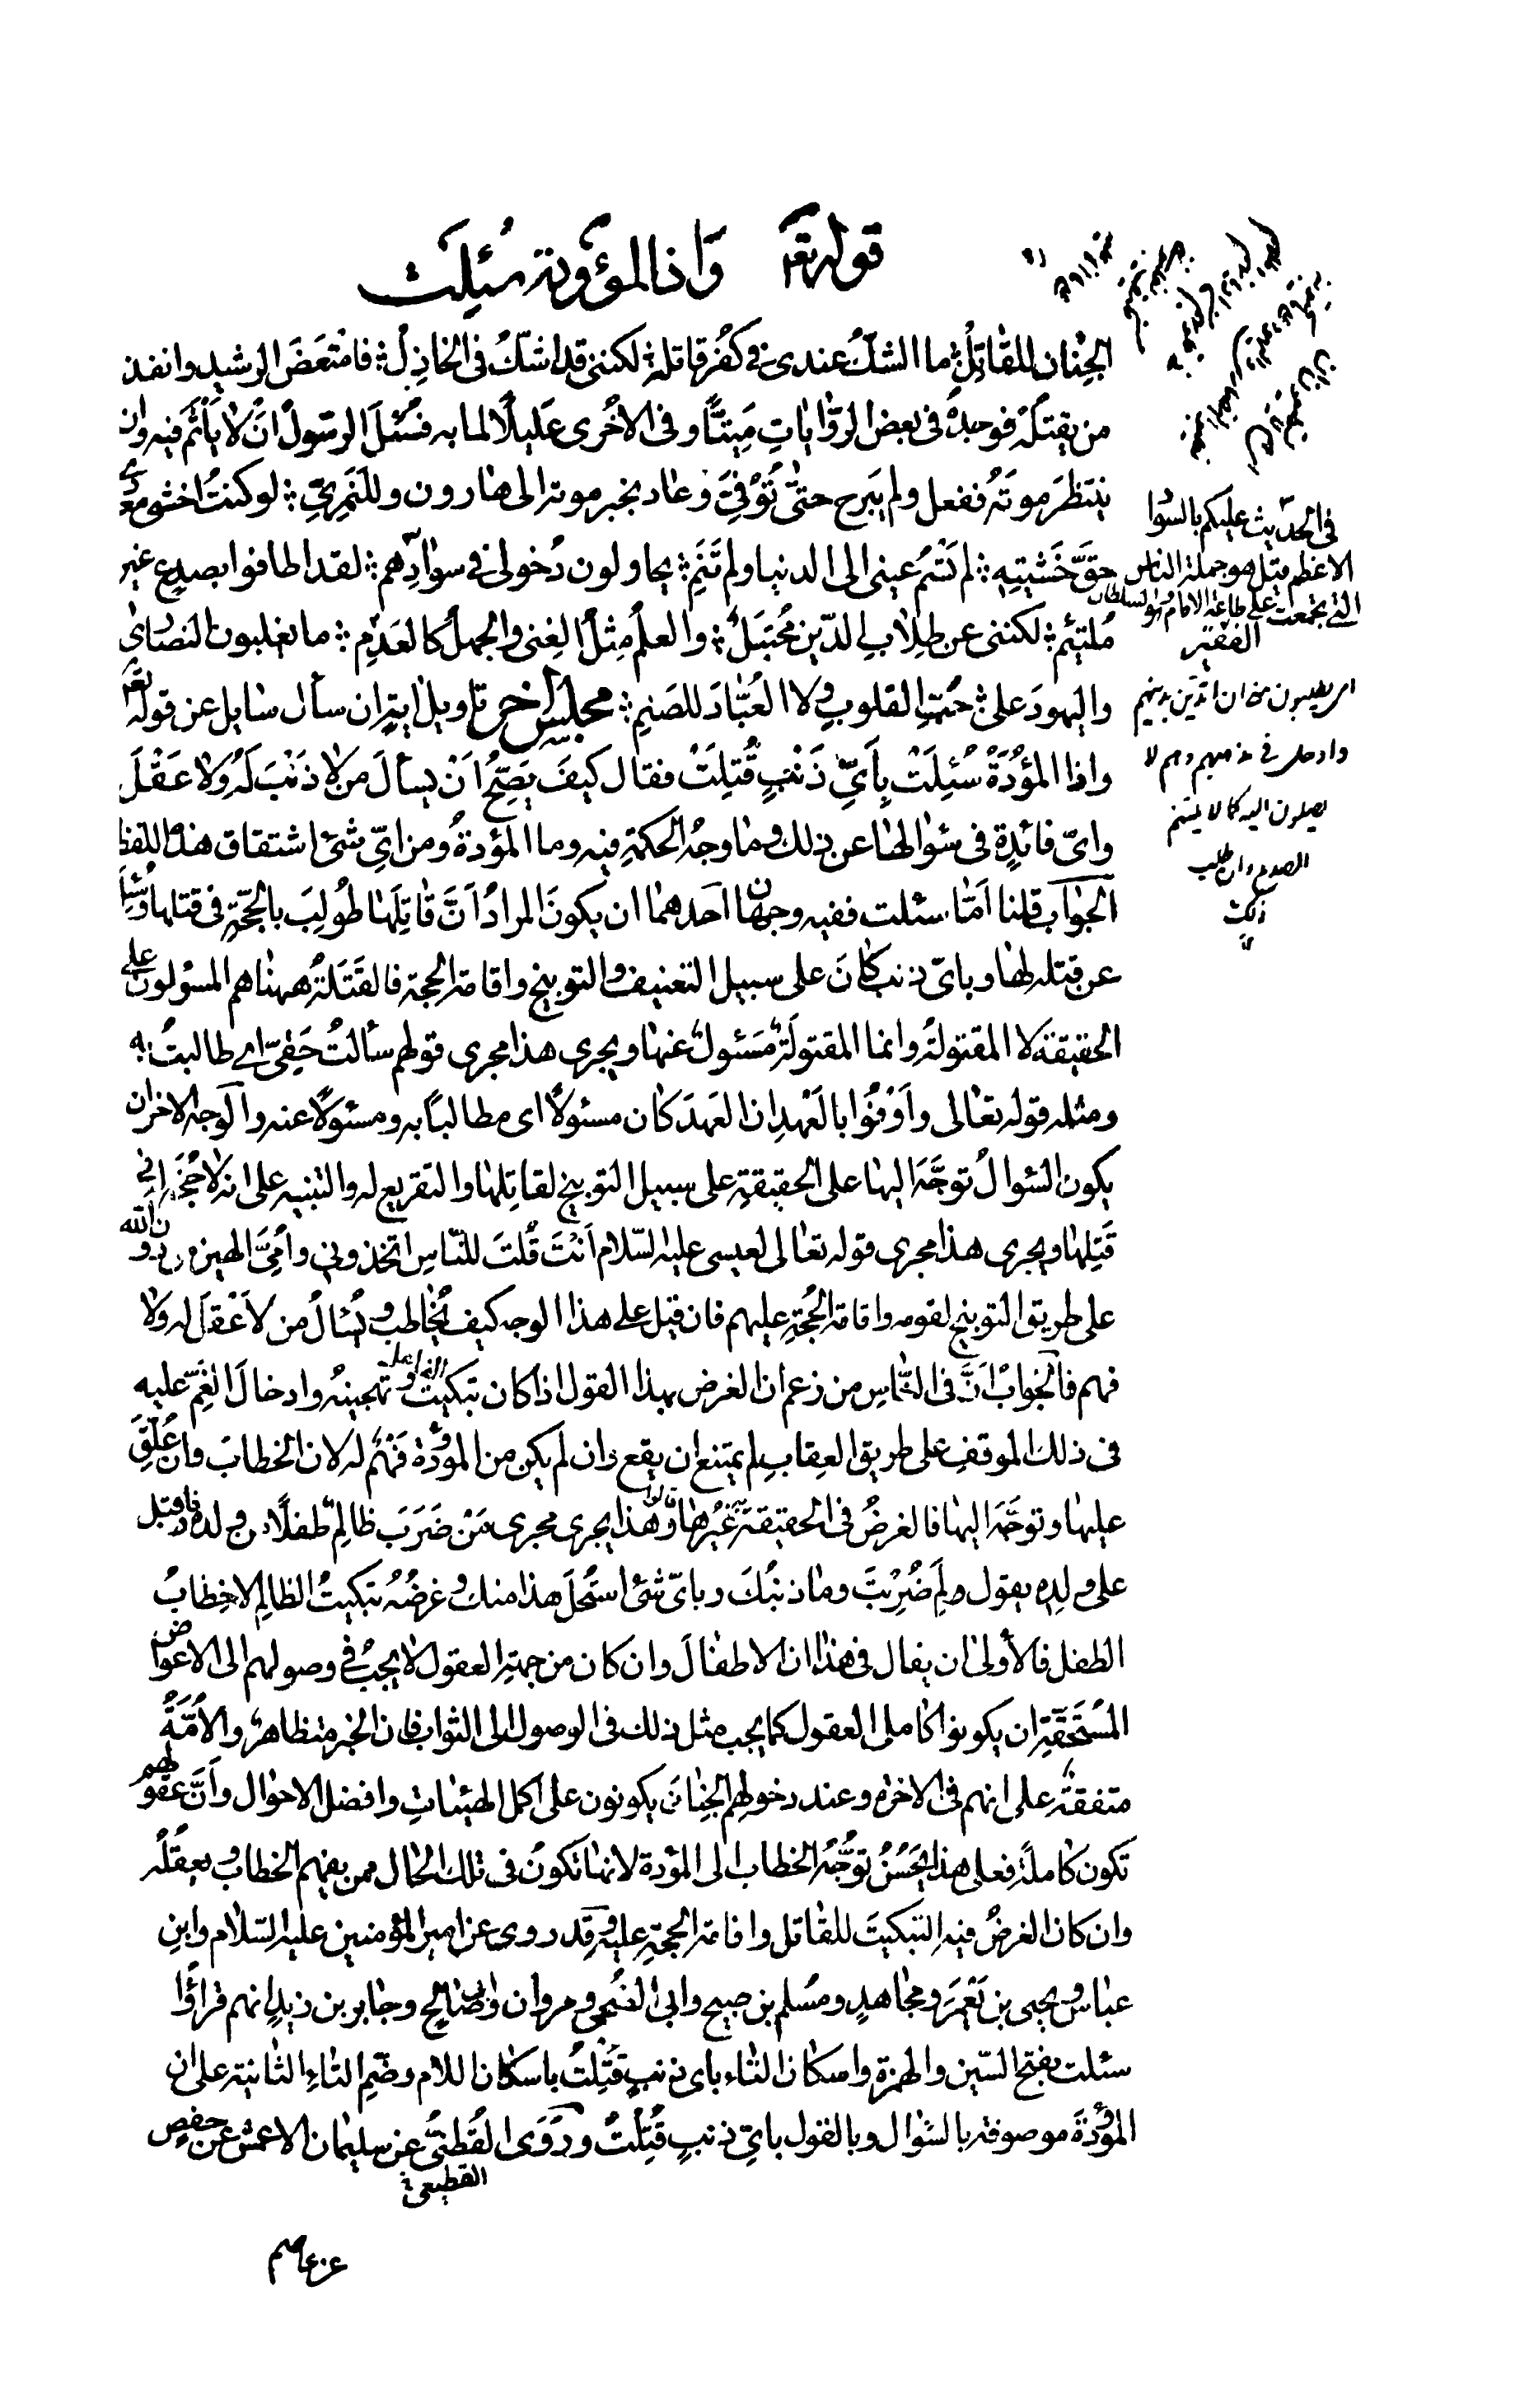 قوله تعم واذا المؤودة سئلت
الجنان للقاتل ؛ ما الشك عندي في كفر قاتله ؛ لكنني قد اشك في الخاذل ؛ فامتعض الرشيد وانفذ
من يقتله فوجده في بعض الروايات ميتا وفي الاخرى عليلا لما به فسئل الرسول ان لا ياثم فيه وان
ينتظر موته ففعل ولم يبرح حتى توفى وعاد بخبر موته الى هارون وللنمري ؛ لو كنت اخشى معادي
حق خشيته ؛ لم تسم عيني الى الدنيا ولم تنم ؛ يحاولون دخولي في سوادهم ؛ لقد اطافوا بصدع غير
ملتئم ؛ لكنني عن طلاب الدين محتبل ؛ والعلم مثل الغنى والجهل كالعدم ؛ ما يغلبون النصارى
واليهود على ؛ حب القلوب ولا العباد للصنم ؛ مجلس اخر تاويل اية ان سأل سايل عن قوله تعم
واذا المؤدة سئلت باي ذنب قتلت فقال كيف يصح ان يسأل من لا ذنب له ولا عقل
واي فائدة في سؤالها عن ذلك وما وجه الحكمة فيه وما المؤدة ومن اي شئ اشتقاق هذا اللفظ
الجواب قلنا اما سئلت ففيه وجهان احدهما ان يكون المراد ان قاتلها طولب بالحجة في قتلها وسئل
عن قتله لها وباي ذنب كان على سبيل التعنيف والتوبيخ واقامة الحجة فالقتلة ههنا هم المسؤلون على
الحقيقة لا المقتولة وانما المقتولة مسئول عنها ويجرى هذا مجرى قولهم سألت حقي اي طالبت به
ومثله قوله تعالى واوفوا بالعهد ان العهد كان مسئولا اي مطالبا به ومسئولا عنه والوجه الاخر ان
يكون السؤال توجه اليها على الحقيقة على سبيل التوبيخ لقاتلها والتقريع له والتنبيه على انه لا حجة له في
قتلها ويجرى هذا مجرى قوله تعالى لعيسى عليه السلام أانت قلت للناس اتخذوني وامي الهين من دون الله
على طريق التوبيخ لقومه واقامة الحجة عليهم فان قيل على هذا الوجه كيف يخاطب ويسأل من لا عقل له ولا
فهم فالجواب ان في الناس من زعم ان الغرض بهذا القول اذا كان تبكيت الفاعل وتهجينه وادخال الغم عليه
في ذلك الموقف على طريق العقاب لم يمتنع ان يقع وان لم يكن من المؤدة فهم له لان الخطاب وان علق
عليها وتوجه اليها فالغرض في الحقيقة به غيرها قالوا وهذا يجرى مجرى من ضرب ظالم طفلا من ولده فاقبل
على ولده يقول ولم ضربت وما ذنبك وباي شئ استحل هذا منك وغرضه تبكيت الظالم لا خطاب
الطفل فالأولى ان يقال في هذا ان الاطفال وان كان من جهة العقول لا يجب في وصولهم الى الاعواض
المستحقة ان يكونوا كاملي العقول كما يجب مثل ذلك في الوصول الى الثواب فان الخبر متظاهر والامة
متفقة على انهم في الاخرة وعند دخولهم الجنان يكونون على اكمل الهيئات وافضل الاحوال وأن عقولهم
تكون كاملة فعلى هذا يحسن توجه الخطاب الى المؤدة لانها تكون في تلك الحال ممن يفهم الخطاب ويعقله
وان كان الغرض فيه التبكيت للقاتل واقامة الحجة عليه وقد روى عن امير المؤمنين عليه السلام وابن
عباس ويحيى بن يعمر ومجاهد ومسلم بن صبيح وابي الضحى ومروان وابي صالح وجابر بن زيد انهم قرأوا
سئلت بفتح السين والهمزة واسكان التاء باي ذنب قتلت باسكان اللام وضم التاء الثانية على ان
المؤودة موصوفة بالسؤال وبالقول باي ذنب قتلت وروى القطني عن سليمان الاعمش عن حفص
القطيعي
عن عاصم
في الحديث عليكم بالسواد
الاعظم قيل هو جملة الناس
التي تجمعت على طاعة الامام وهو السلطان
الفقير
وادخل في مذهبهم وهم لا
يصلون اليه كما لا يلتئم
الصدع وان طلب
ذلك